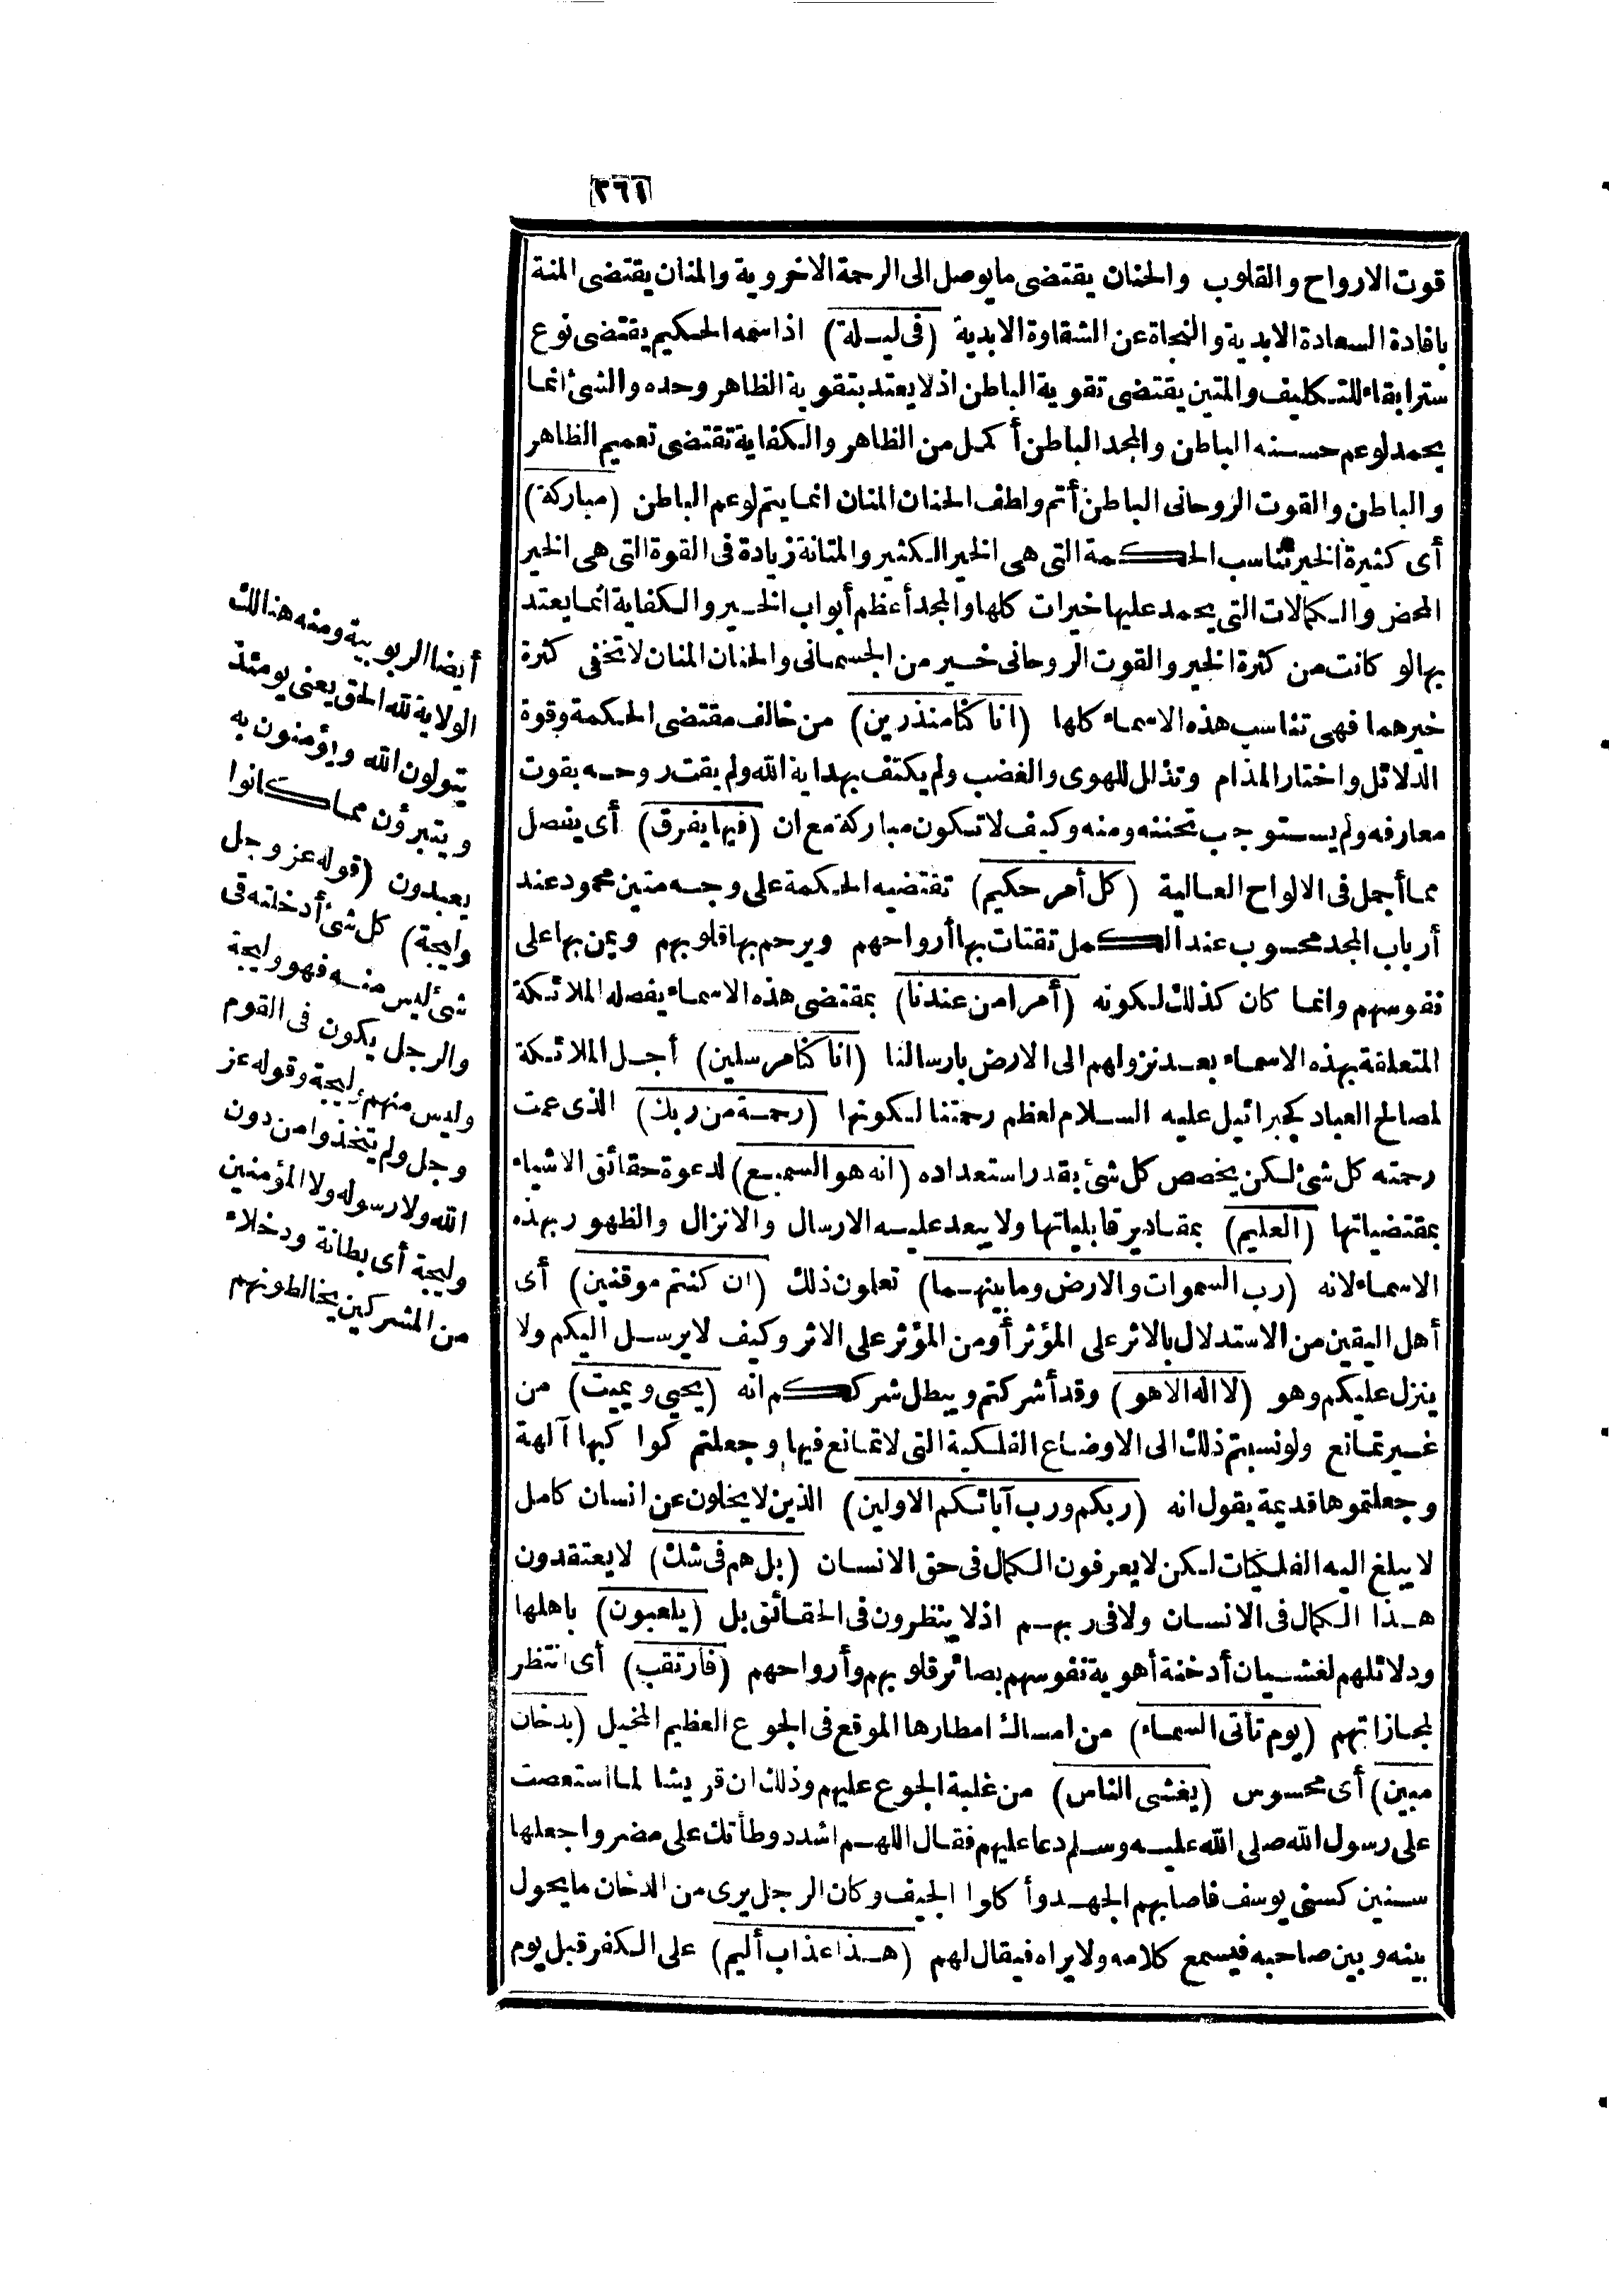 ٢٦١
قوت الارواح والقلوب والحنان يقتضى ما يوصل الى الرحمة الاخروية والمنان يقتضى المنة
بافادة السعادة الابدية والنجاة عن الشقاوة الابدية (فى ليلة) اذ اسمه الحكيم يقتضى نوع
ستر ابقاء للتكليف والمتين يقتضى تقوية الباطن اذ لا يعتد بتقوية الظاهر وحده والشئ انما
يحمد لو عم حسنه الباطن والمجد الباطن أكمل من الظاهر والكفاية تقتضى تعميم الظاهر
والباطن والقوت الروحانى الباطن أتم ولطف الحنان المنان انما يتم لو عم الباطن (مباركة)
أى كثيرة الخير تناسب الحكمة التى هى الخير الكثير والمتانة زيادة فى القوة التى هى الخير
المحض والكمالات التى يحمد عليها خيرات كلها والمجد أعظم أبواب الخير والكفاية انما يعتد
بها لو كانت من كثرة الخير والقوت الروحانى خير من الجسمانى والحنان المنان لا تخفى كثرة
خيرهما فهى تناسب هذه الاسماء كلها (انا كنا منذرين) من خالف مقتضى الحكمة وقوة
الدلائل واختار المذام وتذلل للهوى والغضب ولم يكتف بهداية الله ولم يقت روحه بقوت
معارفه ولم يستوجب تحننه ومنه وكيف لا تكون مباركة مع ان (فيها يفرق) أى يفصل
مما أجمل فى الالواح العالية (كل أمر حكيم) تقتضيه الحكمة على وجه متين محمود عند
أرباب المجد محسوب عند الكمل تقتات بها أرواحهم ويرحم بها قلوبهم ويمن بها على
نفوسهم وانما كان كذلك لكونه (أمرا من عندنا) بمقتضى هذه الاسماء يفصله الملائكة
المتعلقة بهذه الاسماء بعد نزولهم الى الارض بارسالنا (انا كنا مرسلين) أجل الملائكة
لمصالح العباد كجبرائيل عليه السلام لعظم رحمتنا لكونها (رحمة من ربك) الذى عمت
رحمته كل شئ لكن يخصص كل شئ بقدر استعداده (انه هو السميع) لدعوة حقائق الاشياء
بمقتضياتها (العليم) بمقادير قابلياتها ولا يبعد عليه الارسال والانزال والظهور بهذه
الاسماء لانه (رب السموات والارض وما بينهما) تعلون ذلك (ان كنتم موقنين) أى
أهل اليقين من الاستدلال بالاثر على المؤثر أو من المؤثر على الاثر وكيف لا يرسل اليكم ولا
ينزل عليكم وهو (لا اله الا هو) وقد أشركتم ويبطل شرككم انه (يحيى ويميت) من
غير تمانع ولو نسبتم ذلك الى الاوضاع الفلكية التى لا تمانع فيها وجعلتم كواكبها آلهة
وجعلتموها قديمة يقول انه (ربكم ورب آبائكم الاولين) الذين لا يخلون عن انسان كامل
لا يبلغ اليه الفلكيات لكن لا يعرفون الكمال فى حق الانسان (بل هم فى شك) لا يعتقدون
هذا الكمال فى الانسان ولا فى ربهم اذ لا ينظرون فى الحقائق بل (يلعبون) باهلها
ودلائلهم لغشيان أدخنة أهوية نفوسهم بصائر قلوبهم وأرواحهم (فارتقب) أى انتظر
لمجازاتهم (يوم تأتى السماء) من امساك امطارها الموقع فى الجوع العظيم المخيل (بدخان
مبين) أى محسوس (يغشى الناس) من غلبة الجوع عليهم وذلك ان قريشا لما استعصت
على رسول الله صلى الله عليه وسلم دعا عليهم فقال اللهم اشدد وطأتك على مضر واجعلها
سنين كسنى يوسف فاصابهم الجهد وأكلوا الجيف وكان الرجل يرى من الدخان ما يحول
بينه وبين صاحبه فيسمع كلامه ولا يراه فيقال لهم (هذا عذاب أليم) على الكفر قبل يوم
أيضا الربوبية ومنه هنالك
الولاية لله الحق يعنى يومئذ
يتولون الله ويؤمنون به
ويتبرؤن مما كانوا
يعبدون (قوله عز وجل
وليجة) كل شئ أدخلته فى
شئ ليس منه فهو وليجة
والرجل يكون فى القوم
وليس منهم وليجة وقوله عز
وجل ولم يتخذوا من دون
الله ولا رسوله ولا المؤمنين
وليجة أى بطانة ودخلاء
من المشركين يخالطونهم